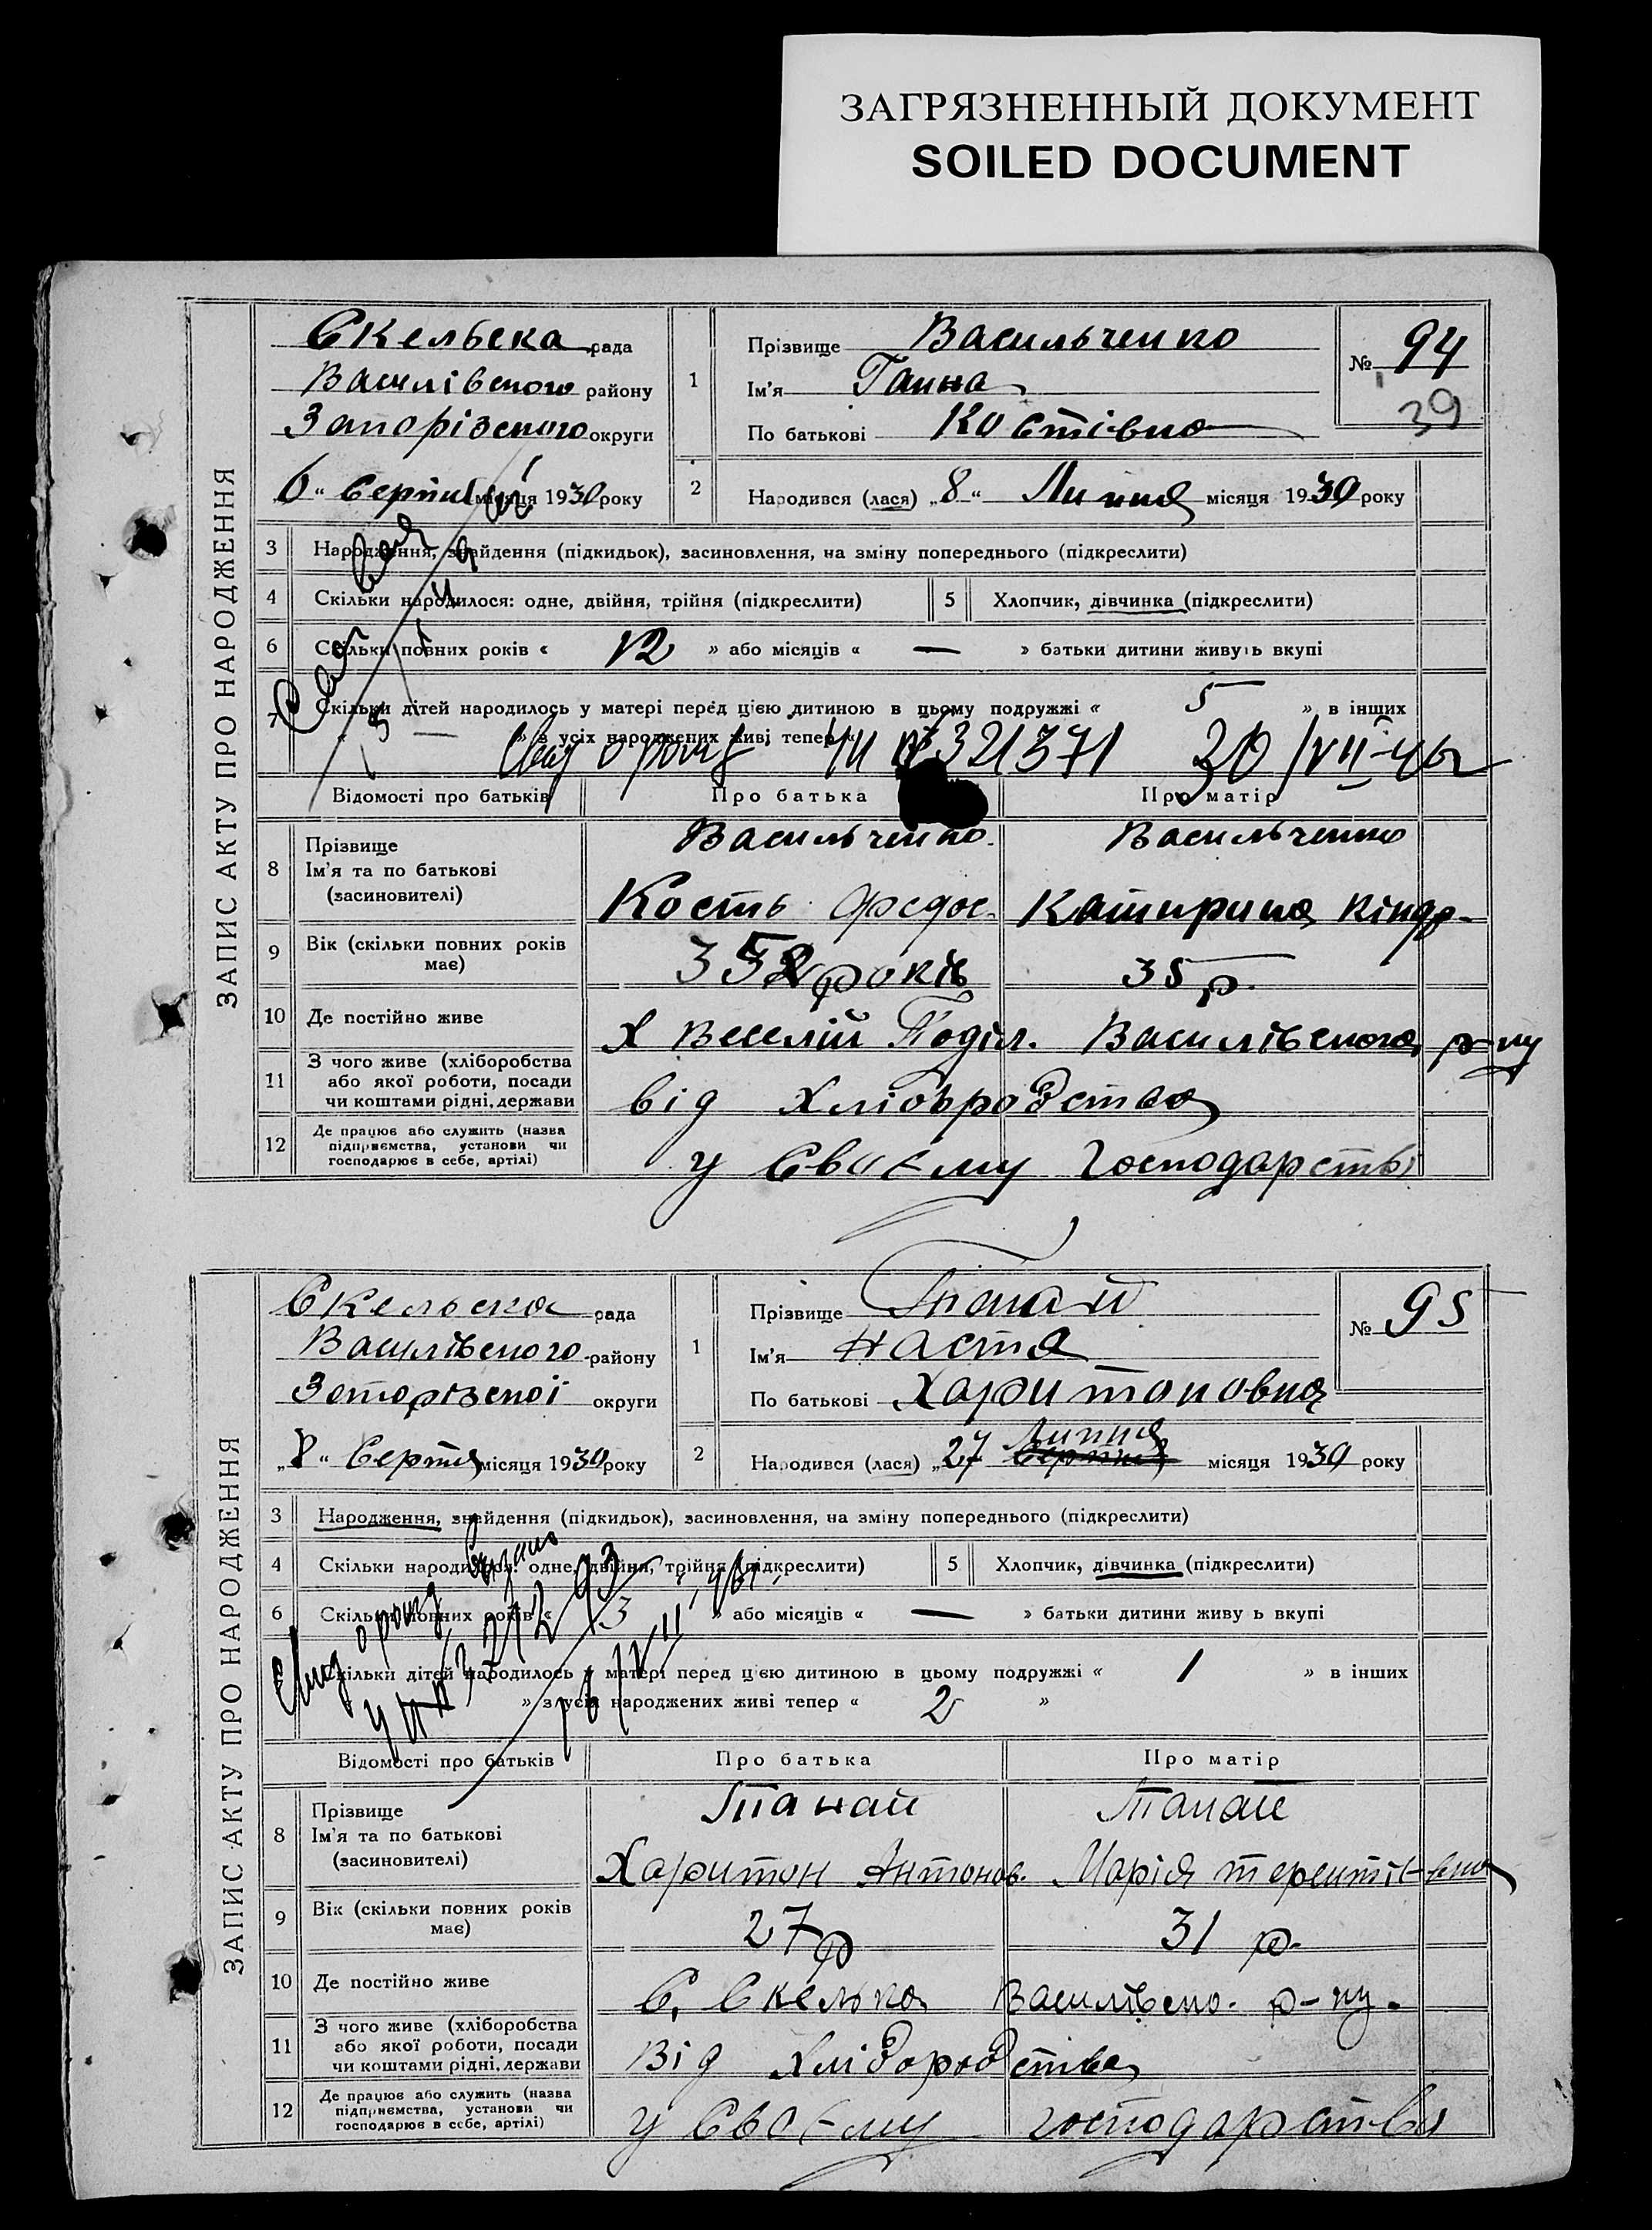 ЗАГРЯЗНЕННЫЙ ДОКУМЕНТ
SOILED DOCUMENT
ЗАПИС АКТУ ПРО НАРОДЖЕННЯ
Скельська рада
Василівського району
Запорізького округи
6 " Серпня місяця 1930 року
1
Прізвище Васильченко
Ім'я Ганна
По батькові Костівна
№ 94
39
2
Народився (лася) „8" Липня місяця 1930 року
3 Народження, знайдення (підкидьок), засиновлення, на зміну попереднього (підкреслити)
4 Скільки народилося: одне, двійня, трійня (підкреслити) 5 Хлопчик, дівчинка (підкреслити)
6 Скільки повних років « 12 » або місяців « — » батьки дитини живуть вкупі
7 Скільки дітей народилось у матері перед цією дитиною в цьому подружжі « 5 » в інших
« — » з усіх народжених живі тепер «
№ 321371
Відомості про батьків Про батька Про матір
8 Прізвище
Ім'я та по батькові
(засиновителі)
Васильченко Васильченко
Кость Федос. Катирина Кіндр.
9 Вік (скільки повних років має)
років 35 р.
10 Де постійно живе
х Веселий Поділ. Василівського р-ну
11 З чого живе (хліборобства або якої роботи, посади чи коштами рідні, держави
від хліборобства
12 Де працює або служить (назва підприємства, установи чи господарює в себе, артілі)
у своєму господарстві
ЗАПИС АКТУ ПРО НАРОДЖЕННЯ
Скельска рада
Василівського району
Запорізької округи
„8" Серпня місяця 1930 року
1
Прізвище Танай
Ім'я Настя
По батькові Харитоновна
№ 95
2
Народився (лася) „27 Липня Серпня місяця 1930 року
3 Народження, знайдення (підкидьок), засиновлення, на зміну попереднього (підкреслити)
4 Скільки народилося: одне, двійня, трійня (підкреслити) 5 Хлопчик, дівчинка (підкреслити)
6 Скільки повних років « 3 » або місяців « — » батьки дитини живу ь вкупі
Скільки дітей народилось у матері перед цією дитиною в цьому подружжі « 1 » в інших
» з усіх народжених живі тепер « 2 »
Відомості про батьків Про батька Про матір
8 Прізвище
Ім'я та по батькові
(засиновителі)
Танай Танай
Харитон Антонов. Марія Терентієвна
9 Вік (скільки повних років має)
27 р 31 р.
10 Де постійно живе
С. Скелька Василівсько. р-ну.
11 З чого живе (хліборобства або якої роботи, посади чи коштами рідні, держави
Від хліборобства
12 Де працює або служить (назва підприємства, установи чи господарює в себе, артілі)
у своєму господарстві